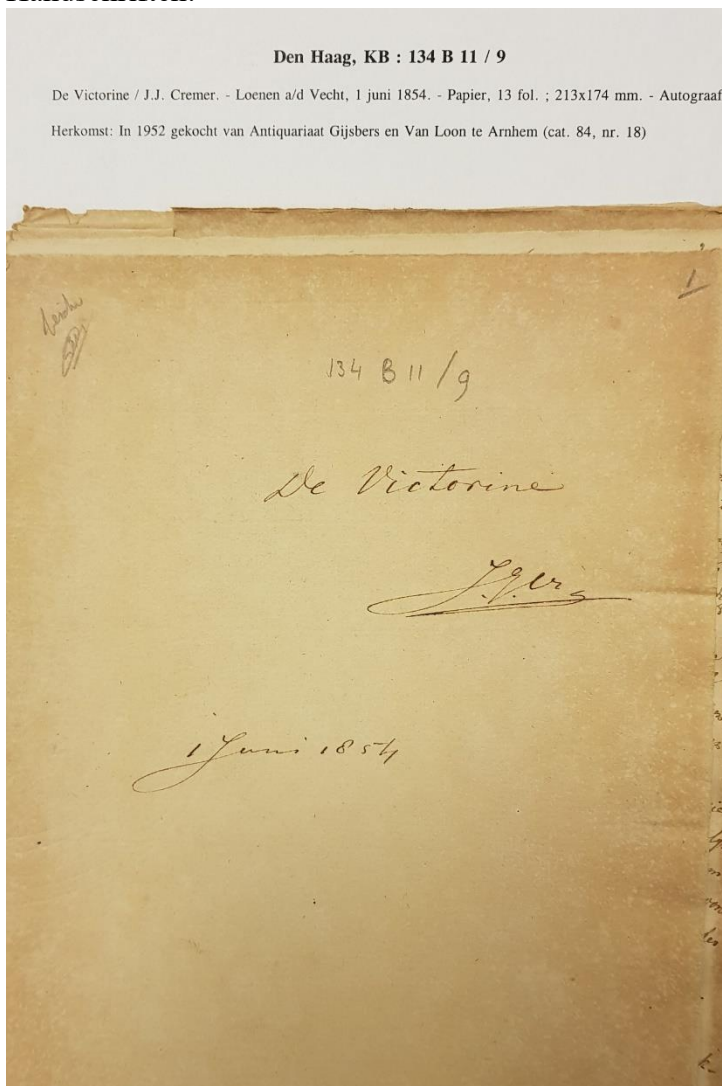 Den Haag, KB : 134 B 11 / 9
De Victorine / J.J. Cremer. - Loenen a/d Vecht, 1 juni 1854. - Papier, 13 fol. ; 213x174 mm. - Autograaf
Herkomst: In 1952 gekocht van Antiquariaat Gijsbers en Van Loon te Arnhem (cat. 84, nr. 18)
1
134 B 11/9
De Victorine
J.J. Cr.
1 Juni 1854